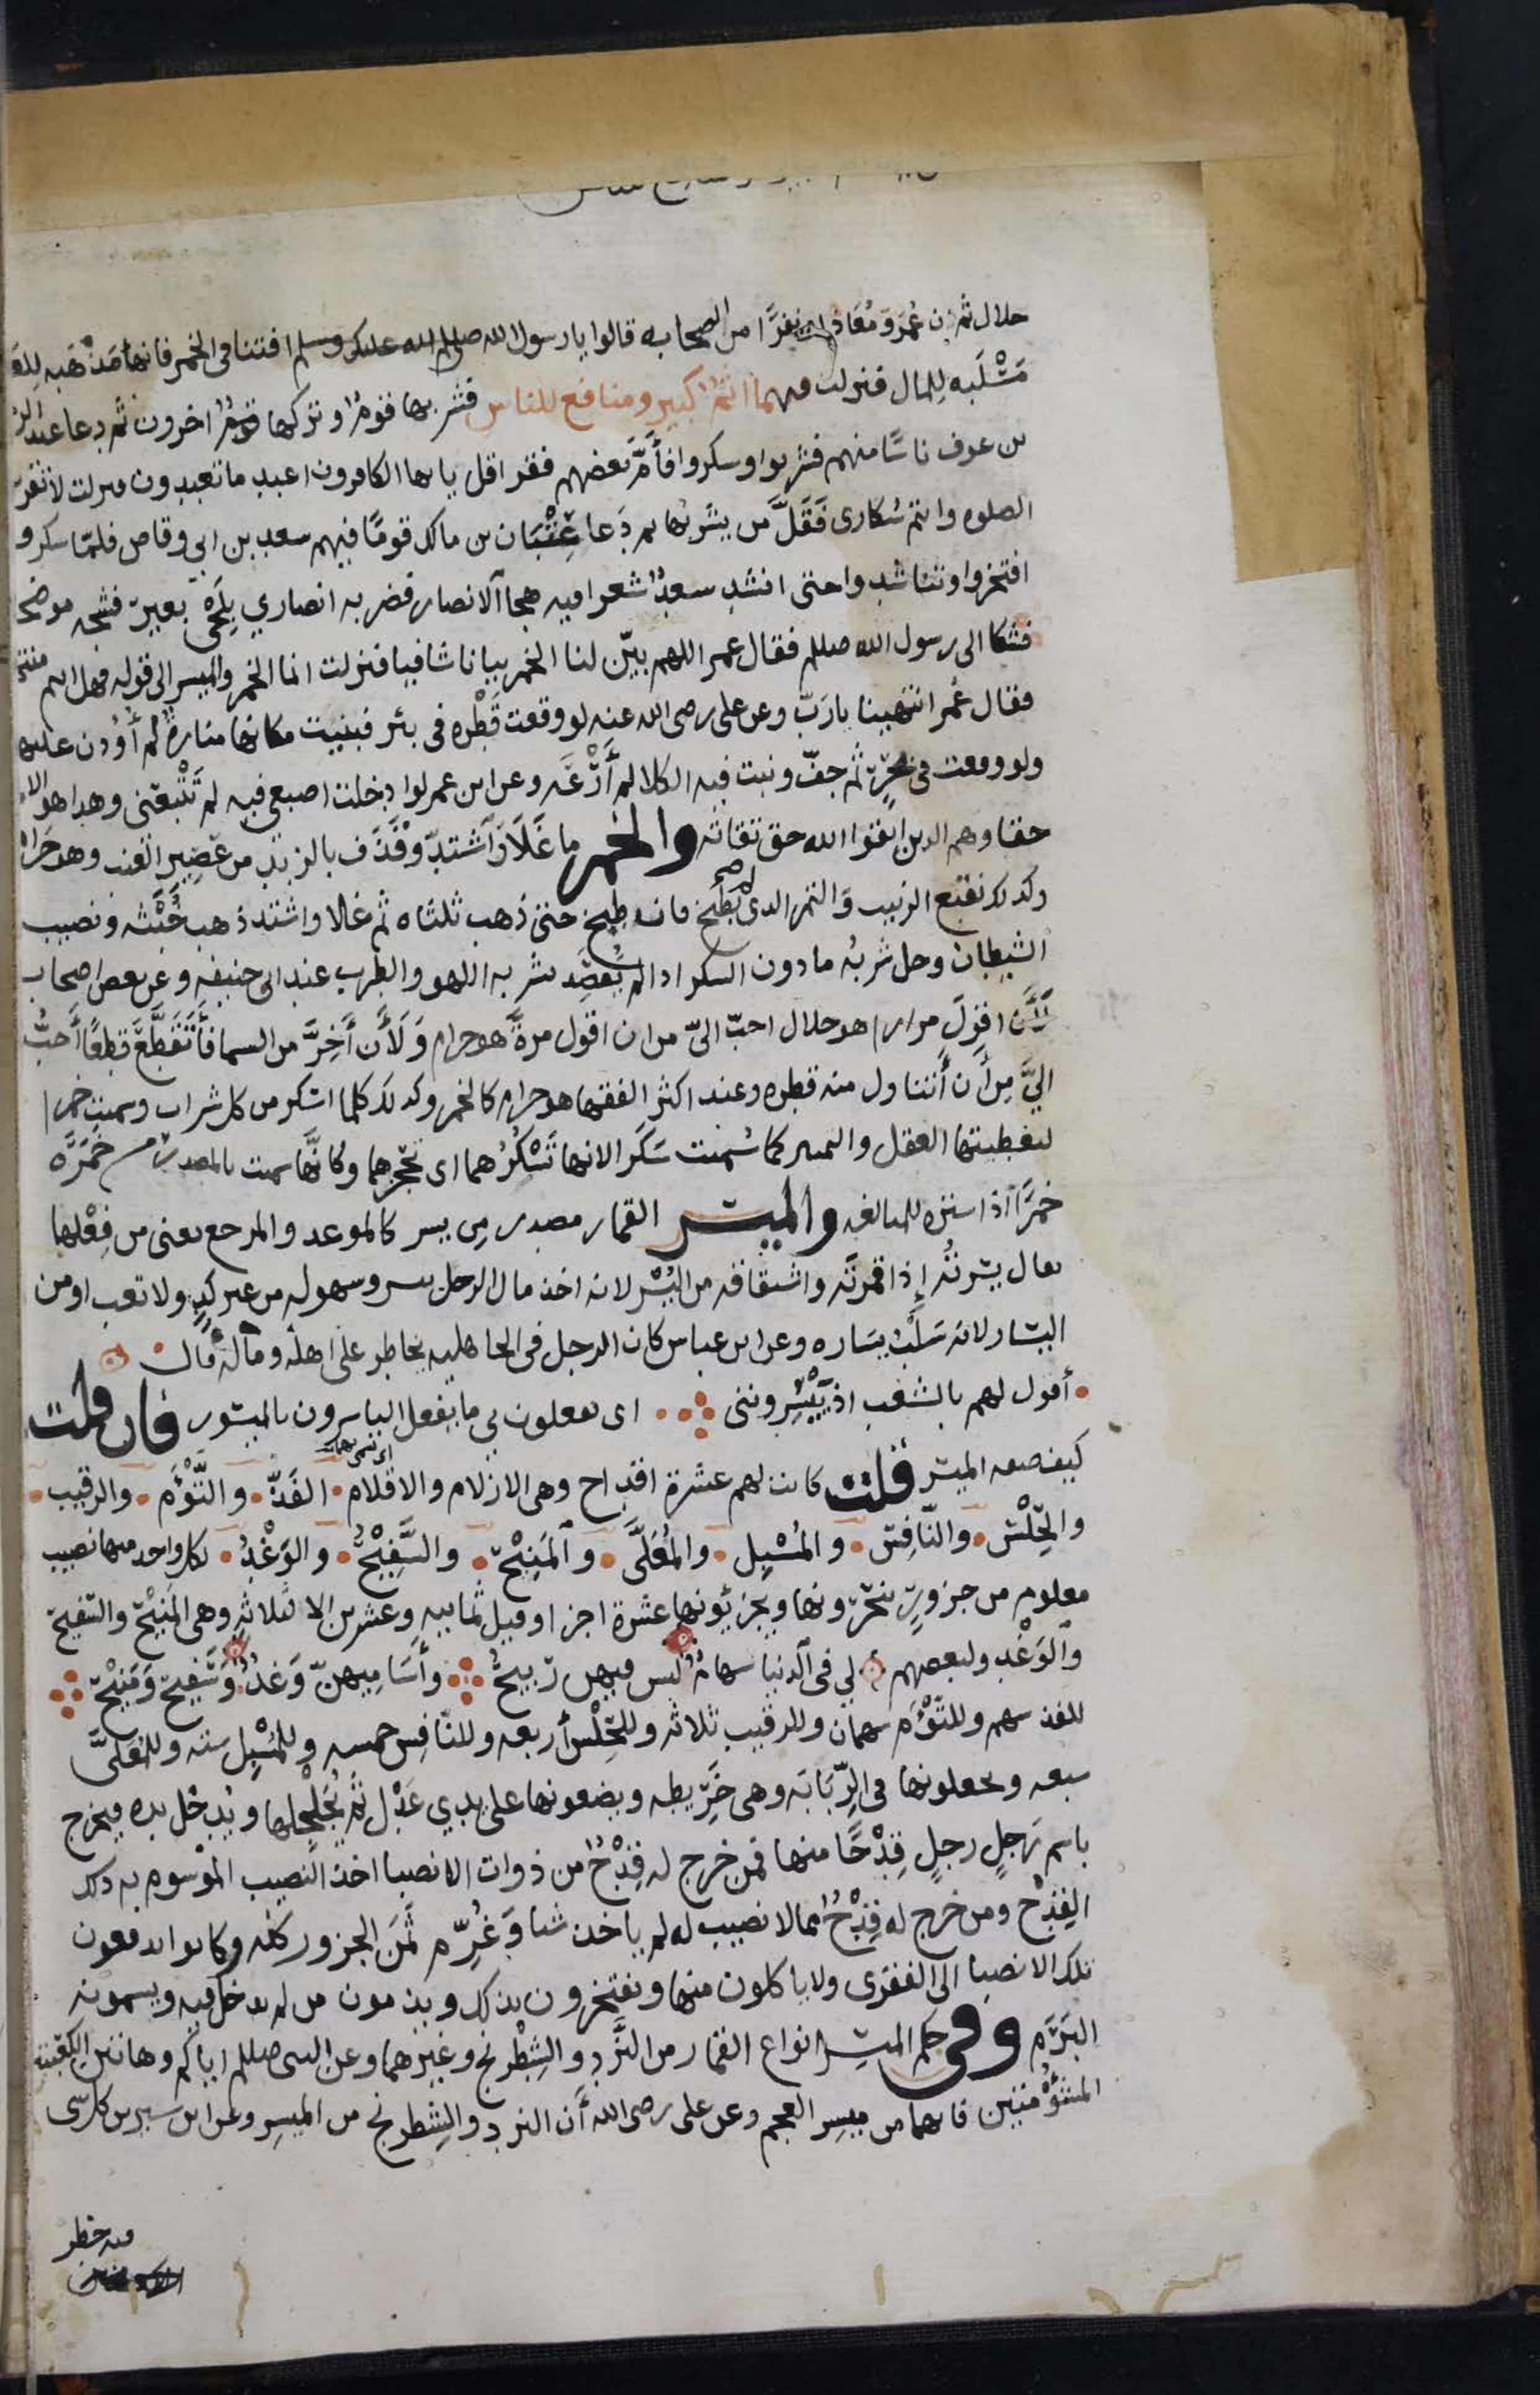 حلال ثم ان عمر ومعاذ ونفرا من الصحابه قالوا يا رسول الله صلى الله عليك وسلم افتنا فى الخمر فانها مذهبه للعقل
مسلبه للمال فنزلت فيهما اثم كبير ومنافع للناس فشربها قوم وتركها قوم اخرون ثم دعا عبد الرحمن
بن عوف ناسا منهم فشربوا وسكروا فأمّ بعضهم فقرا قل يايها الكافرون اعبد ما تعبدون فنزلت لا تقربوا
الصلوه وانتم سكارى فقلّ من يشربها ثم دعا عتبان بن مالك قوما فيهم سعد بن ابى وقاص فلما سكروا
افتخروا وتناشدوا حتى انشد سعد شعرا فيه هجا الانصار فضربه انصاري بلحى بعير فشجه موضحة
فشكا الى رسول الله صللم فقال عمر اللهم بيّن لنا الخمر بيانا شافيا فنزلت انما الخمر والميسر الى قوله فهل انتم منتهون
فقال عمر انتهينا يا ربّ وعن على رضى الله عنه لو وقعت قطره فى بئر فبنيت مكانها منارة لم أوذن عليها
ولو وقعت فى بحر ثم جفّ ونبت فيه الكلا لم أرعه وعن ابن عمر لو ادخلت اصبعى فيه لم تتبعنى وهذا هو الايمان
حقا وهم الذين اتقوا الله حق تقاته والخمر ما غلا واشتدّ وقذف بالزبد من عصير العنب وهو حرام
وكذلك نقيع الزبيب والتمر الذى لم يطبخ فان طبخ حتى ذهب ثلثاه ثم غلا واشتد ذهب خبثه ونصيب
الشيطان وحل شربه ما دون السكر اذا لم يقصد بشربه اللهو والطرب عند ابى حنيفه وعن بعض اصحابه
لأن اقول مرارا هو حلال احبّ الىّ من ان اقول مرة هو حرام ولأن أخرّ من السما فأتقطع قطعا أحبّ
اليّ من أن أتناول منه قطره وعند اكثر الفقها هو حرام كالخمر وكذلك كلما اسكر من كل شراب وسميت خمرا
لتغطيتها العقل والتمييز كما سميت سكرا لانها تسكرهما اى تحجزهما وكانها سميت بالمصدر من خمره
خمرا اذا ستره للمبالغه والميسر القمار مصدر من يسر كالموعد والمرجع يعنى من فعلها
يقال يسرته إذا قمرته واشتقاقه من اليسر لانه اخذ مال الرجل بيسر وسهوله من غير كد ولا تعب او من
اليسار لانه سلب يساره وعن ابن عباس كان الرجل فى الجاهليه يخاطر على اهله وماله قال
أقول لهم بالشعب اذ ييسروننى اى يفعلون بي ما يفعل الياسرون بالميسور فان قلت
كيف صفه الميسر قلت كانت لهم عشرة اقداح وهى الازلام والاقلام الفذّ والتوأم والرقيب
والحلس والنافس والمسبل والمعلّى والمنيح والسفيح والوغد لكل واحد منها نصيب
معلوم من جزور ينحرونها ويجزئونها عشرة اجزا وقيل ثمانيه وعشرين الا لثلاثه وهى المنيح والسفيح
والوغد ولبعضهم لي فى الدنيا سهام ليس فيهن ربيح وأساميهنّ وغد وسفيح ومنيح
للفذ سهم وللتوأم سهمان وللرقيب ثلاثه وللحلس أربعه وللنافس خمسه وللمسبل سته وللمعلّى
سبعه ويجعلونها فى الربابه وهى خريطه ويضعونها على يدي عدل ثم يجلجلها ويدخل يده فيخرج
باسم رجل رجل قدحا منها فمن خرج له قدح من ذوات الانصبا اخذ النصيب الموسوم به ذلك
القدح ومن خرج له قدح مما لا نصيب له لم ياخذ شيا وغرّم ثمن الجزور كله وكانوا يدفعون
تلك الانصبا الى الفقرى ولا ياكلون منها ويفتخرون بذلك ويذمون من لم يدخل فيه ويسمونه
البرم وفى حكم الميسر انواع القمار من النرد والشطرنج وغيرهما وعن النبى صللم اياكم وهاتين الكعبتين
المشئومتين فانهما من ميسر العجم وعن على رضى الله أن النرد والشطرنج من الميسر وعن ابن سيرين كل شى
فيه خطر